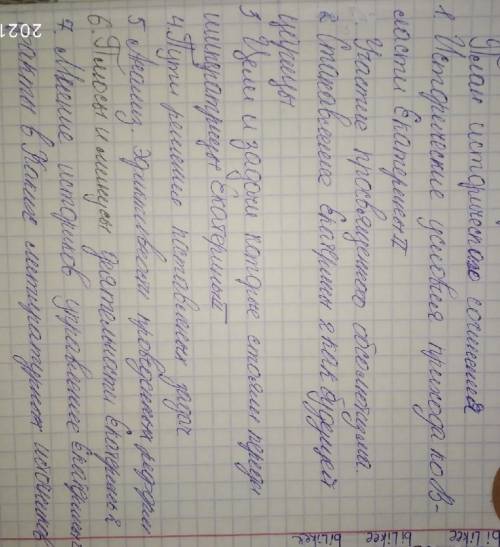 План исторического сочинения
1. Исторические условия прихода к в-
ласти Екатерины II
Участие просвещенного абсолютизма.
2 Становление Екатерины 2 как будущей
царицы
3 Цели и задачи которые стояли перед
императрицы Екатериной
4. Пути решение поставленых задач
5 Анализ. Эффективности проведенных реформ
6. Плюсы и минусы деятельности Екатерины 2
7 Мнение историков управление Екатерины 2
факты в Каких литературных источников
bilikec
bilikec
bilikec
2021